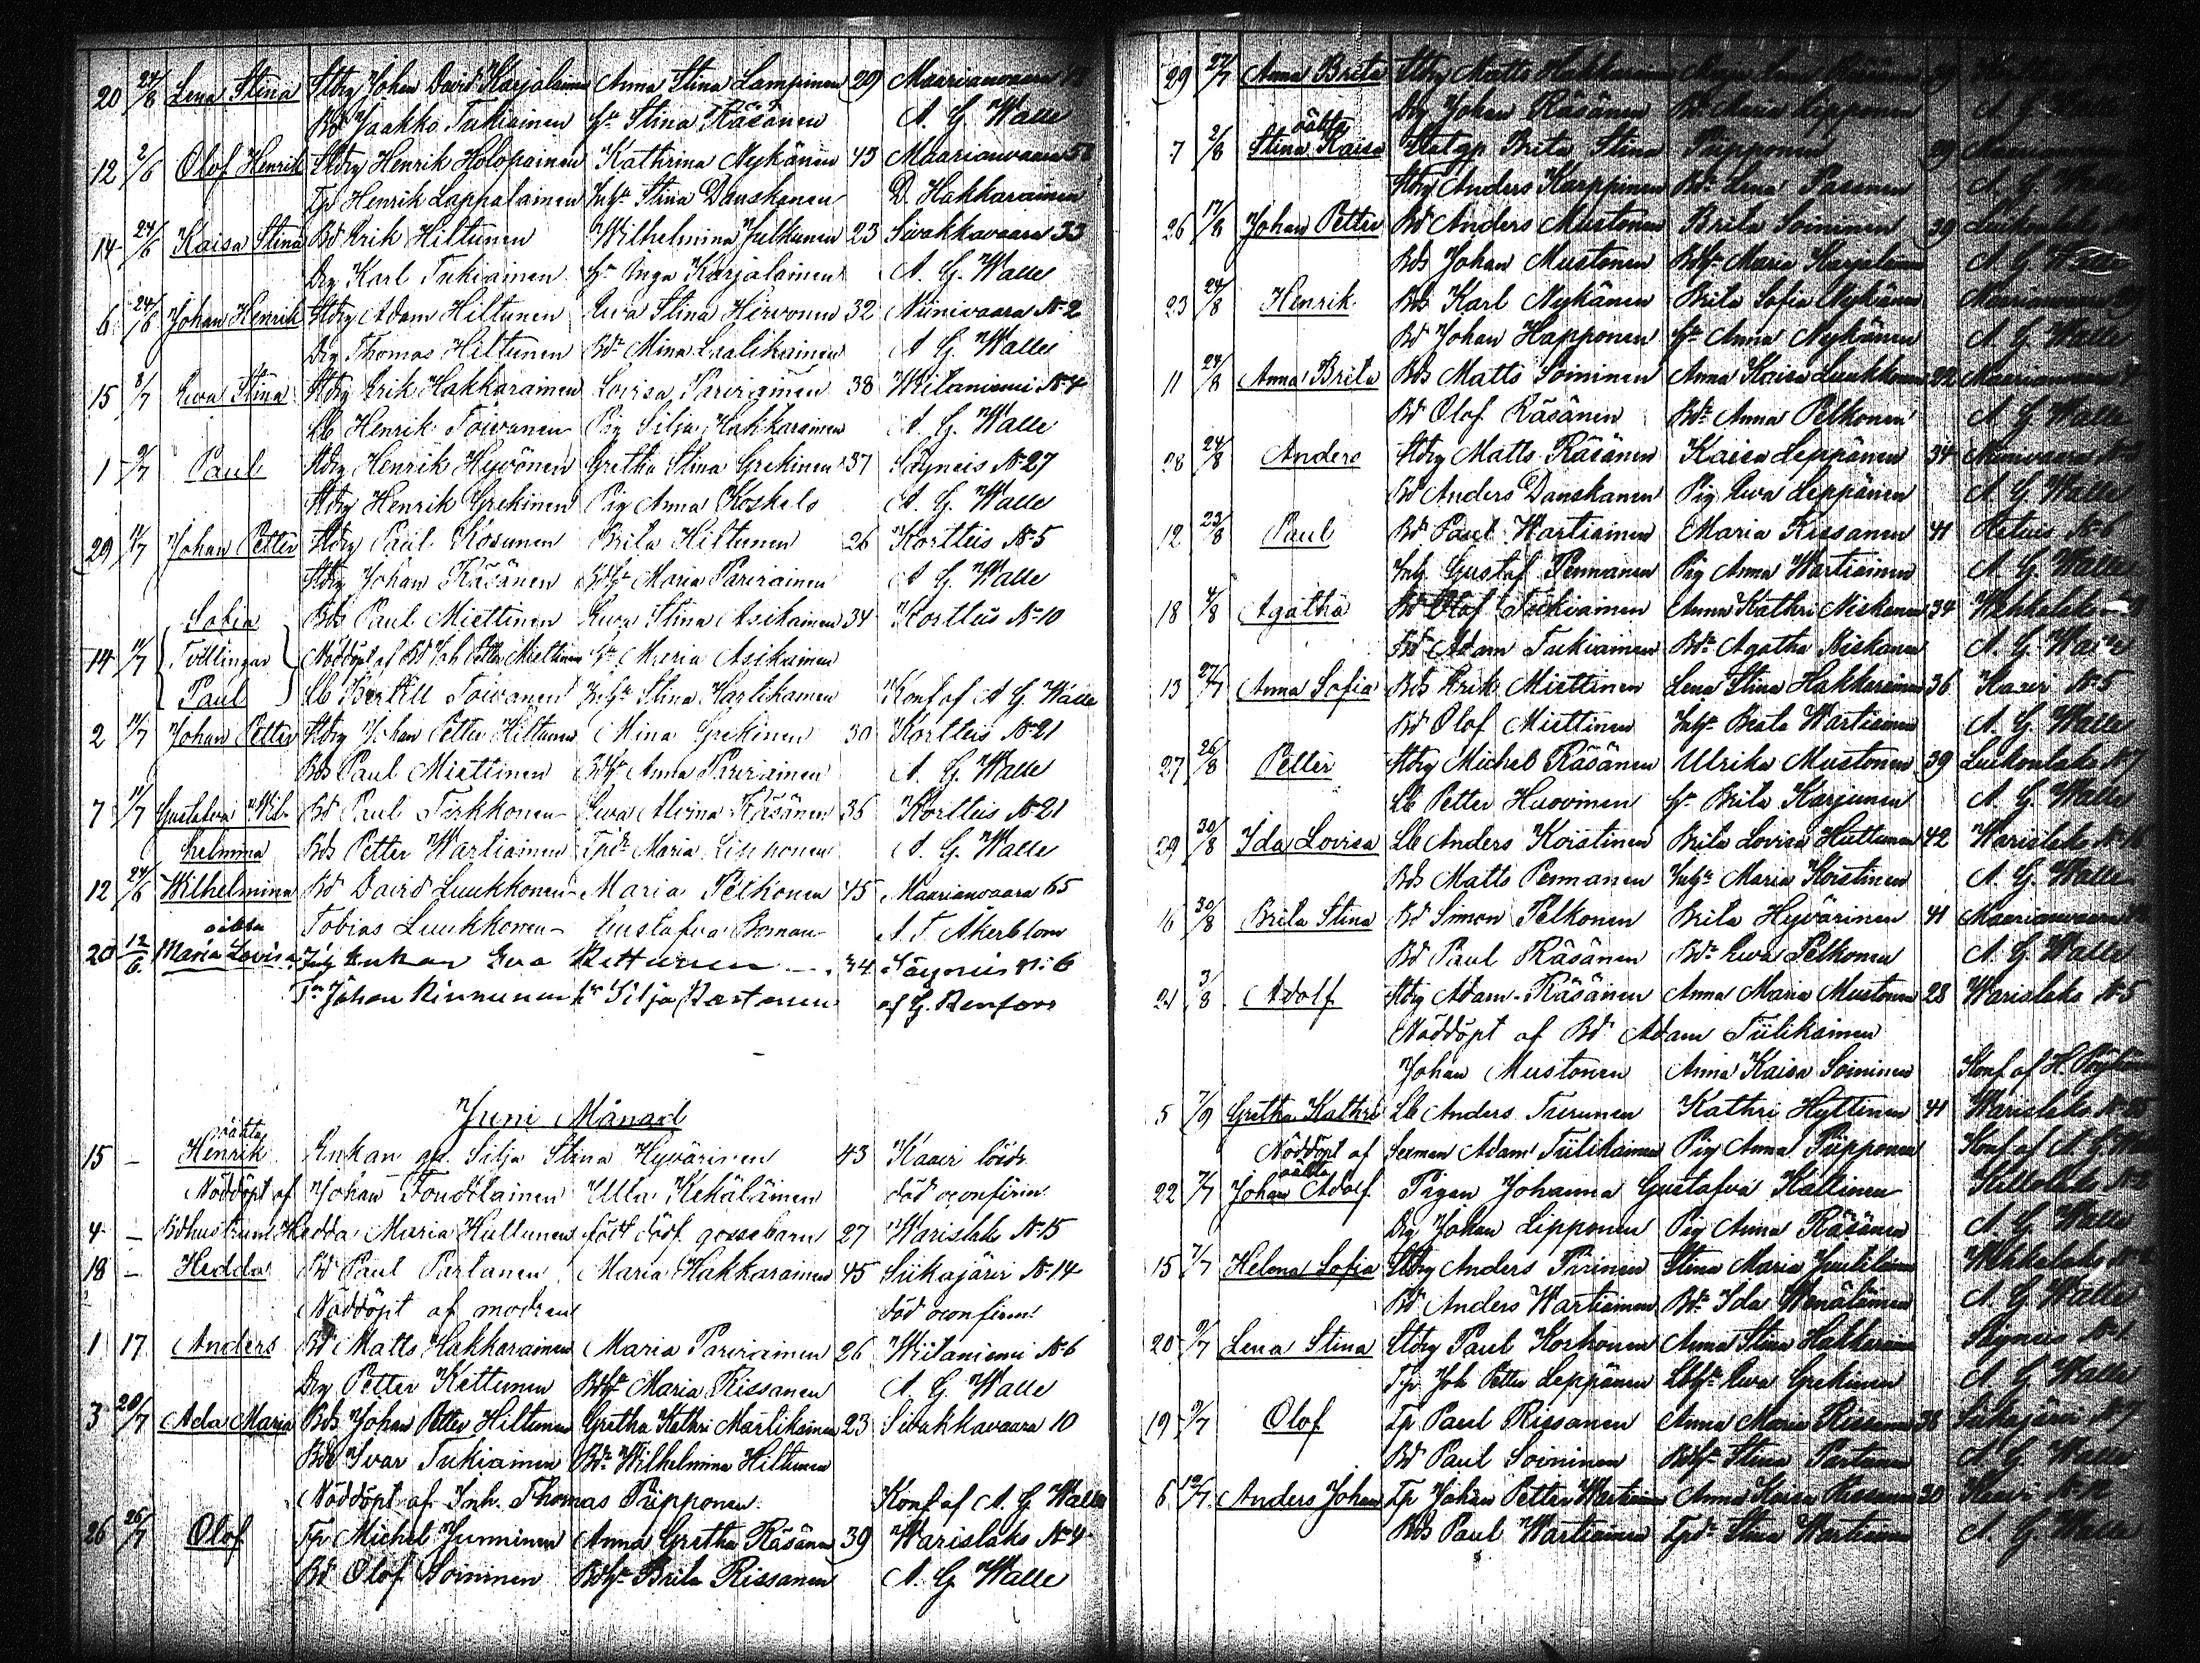 20 24/8 Lena Stina Stdrg Johan David Karjalainen Anna Stina Lampinen 29 Maarianvaara
Bd Jaakko Tukiainen hr Stina Räsänen A. G. Walle
12 2/6 Olof Henrik Stdrg Henrik Holopainen Kathrina Nykänen 43 Maarianvaara
Tp Henrik Lappalainen Inhr Stina Danskanen D. Hakkarainen
14 24/6 Kaisa Stina Bd Erik Hiltunen Wilhelmina Julkunen 23 Sivakkavaara 33
Drg Karl Tukiainen hr Inga Karjalainen A. G. Walle
6 24/6 Johan Henrik Stdrg Adam Hiltunen Ewa Stina Hirvonen 32 Niinivaara No 2
Drg Thomas Hiltunen Bdr Mina Laalikainen A. G. Walle
15 8/7 Ewa Stina Stdrg Erik Hakkarainen Lovisa Parviainen 38 Witaniemi No 4
Lb Henrik Toivanen Pig Silja Hakkarainen A. G. Walle
1 9/7 Paul Stdrg Henrik Hyvönen Gretha Stina Grekinen 37 Säyneis No 27
Stdrg Henrik Grekinen Pig Anna Koskelo A. G. Walle
29 11/7 Johan Petter Stdrg Paul Kosunen Brita Hiltunen 26 Kortteis No 5
Stdrg Johan Räsänen Bdhr Maria Parviainen A. G. Walle
Sofia Bds Paul Miettinen Ewa Stina Asikainen 34 Kortteis No 10
14 11/7 Tvillingar Nöddöpt af Bd Joh Petter Miettinen hr Maria Asikainen
Paul Lb Bertill Toivanen Inhr Stina Martikainen Konf af A G Walle
2 11/7 Johan Petter Stdrg Johan Petter Hiltunen Mina Grekinen 30 Kortteis No 21
Bds Paul Miettinen Bdhr Anna Parviainen A. G. Walle
7 11/7 Gustafva Wil- Bd Paul Tirkkonen Ewa Alvina Räsänen 36 Kortteis No 21
helmina Bds Petter Wartiainen Tpdr Maria Lipponen A. G. Walle
12 24/6 Wilhelmina Bd David Luukkonen Maria Pelkonen 45 Maarianvaara 65
Tobias Luukkonen Gustafva Boman A. T. Åkerblom
oäkta
20 12/6 Maria Lovisa Inh Enkan Eva Kettunen 34 Säyneis No 6
Johan Kinnunen hr Silja Rastonen af G. Renfors
Juni Månad
oäkta
15 – Henrik Enkan gp. Silja Stina Hyvärinen 43 Kaavi lösdr
Nöddöpt af Johan Toudolainen Ulla Kekäläinen död oconfirm.
4 – Bdhustrun Hedda Maria Huttunen födt dödf. gossebarn 27 Warislaks No 15
18 – Hedda Bd Paul Partanen Maria Hakkarainen 45 Siikajärvi No 14
Nöddöpt af modren död oconfirm.
1 17 Anders Bd Matts Hakkarainen Maria Parviainen 26 Wiitaniemi No 6
Drg Petter Kettunen Bdhr Maria Rissanen A. G. Walle
3 20/7 Ada Maria Bds Johan Petter Hiltunen Gretha Kathri Martikainen 23 Sivakkavaara 10
Bds Ivar Tukiainen Bdr Wilhelmina Hiltunen
Nöddöpt af Inh. Thomas Piipponen Konf af A. G. Walle
26 26/7 Olof Tp Michel Junninen Anna Gretha Räsänen 39 Warislaks No 4
Bd Olof Soininen Bdhr Brita Rissanen A. G. Walle
29 27/7 Anna Brita Stdrg Matts Hakkarainen
Drg Johan Räsänen Bdr Maria Lipponen A. G. Walle
oäkta
7 2/8 Stina Kaisa Brita Stina Piipponen
Stdrg Anders Karppinen Bdr Lena Pasanen A. G. Walle
26 17/8 Johan Petter Bd Anders Mustonen Brita Soininen 39 Luikonlaks
Bds Johan Mustonen Bdhr Maria A. G. Walle
23 24/8 Henrik Bds Karl Nykänen Brita Sofia Nykänen Maarianvaara
Bd Johan Happonen hr Anna Nykänen A. G. Walle
11 24/8 Anna Brita Bds Matts Soininen Anna Kaisa Luukkonen 22 Maarianvaara
Bd Olof Räsänen Bdr Anna Pelkonen A. G. Walle
28 24/8 Anders Stdrg Matts Räsänen Kaisa Leppänen 34 Niinivaara
Bd Anders Danskanen Pig Ewa Leppänen A. G. Walle
12 23/8 Paul Bd Paul Wartiainen Maria Kiisanen 41 Retuis No 6
Inh. Gustaf Pennanen Pig Anna Wartiainen A. G. Walle
18 4/8 Agatha Bd Olof Tukiainen Anna Kathri Niskanen 34 Wehkalaks
Bd Adam Tukiainen Bdr Agatha Niskanen A. G. Walle
13 27/7 Anna Sofia Bds Erik Miettinen Lena Stina Hakkarainen 36 Kaavi No 5
Bd Olof Miettinen Inhr Beata Wartiainen A. G. Walle
27 26/8 Petter Stdrg Michel Räsänen Ulrika Mustonen 39 Luikonlaks No 7
Lb Petter Huovinen hr Brita Karjunen A. G. Walle
29 30/8 Ida Lovisa Lb Anders Koistinen Brita Lovisa Huttunen 42 Warislaks No 16
Bds Matts Pennanen Inhr Maria Koistinen A. G. Walle
16 30/8 Brita Stina Bd Simon Pelkonen Brita Hyvärinen 41 Maarianvaara
Bd Paul Räsänen Bdr Ewa Pelkonen A. G. Walle
21 3/8 Adolf Stdrg Adam Räsänen Anna Maria Mustonen 28 Warislaks No 5
Nöddöpt af Bd Adam Tiilikainen
Johan Mustonen Anna Kaisa Soininen Konf af H.
5 7/9 Gretha Kathri Lb Anders Tuerunen Kathri Hyttinen 41 Warislaks
Nöddöpt af Sexman Adam Tiilikainen Pig Anna Piipponen Konf af A G Walle
oäkta
22 7/7 Johan Adolf Pigan Johanna Gustafva Kaltinen
Drg Johan Lipponen Pig Anna Räsänen A. G. Walle
15 7/7 Helena Sofia Stdrg Anders Pirinen Stina Maria Juutilainen Wehkalaks
Bd Anders Wartiainen Bdr Ida Wenäläinen A. G. Walle
20 9/7 Lena Stina Stdrg Paul Korhonen Anna Stina Hakkarainen Säyneis No 1
Tp Joh Petter Leppänen Lbhr Ewa Grekinen A. G. Walle
19 9/7 Olof Tp Paul Rissanen Anna Maria Rissanen 38 Siikajärvi No 7
Bd Paul Soininen Bdhr Stina Partanen A. G. Walle
6 12/7 Anders Johan Tp Johan Petter Wartiainen Anna Kaisa Rissanen 30 Kaavi No 12
Bds Paul Wartiainen Tpdr Stina Wartiainen A. G. Walle